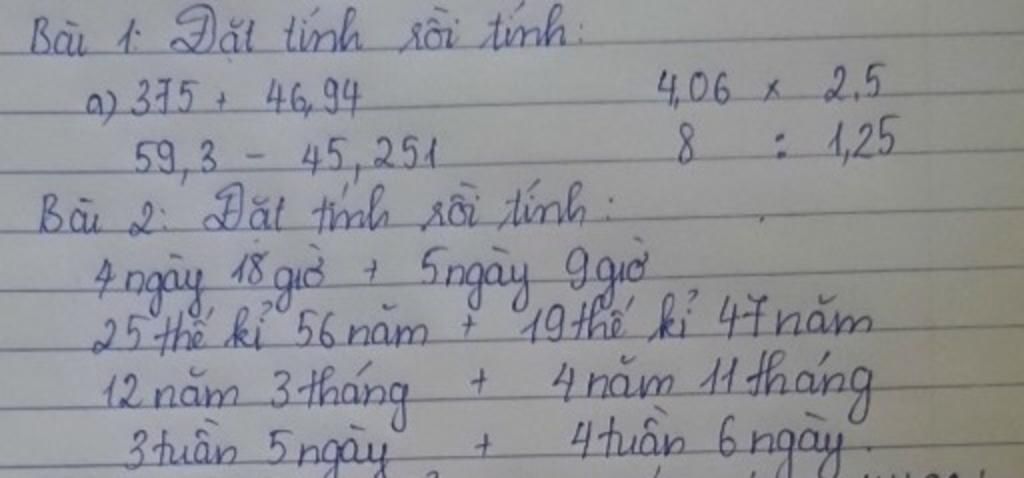 Bài 1: Đặt tính rồi tính:
a) 375 + 46,94 4,06 x 2,5
59,3 - 45,251 8 : 1,25
Bài 2: Đặt tính rồi tính:
4 ngày 18 giờ + 5 ngày 9 giờ
25 thế kỉ 56 năm + 19 thế kỉ 47 năm
12 năm 3 tháng + 4 năm 11 tháng
3 tuần 5 ngày + 4 tuần 6 ngày.